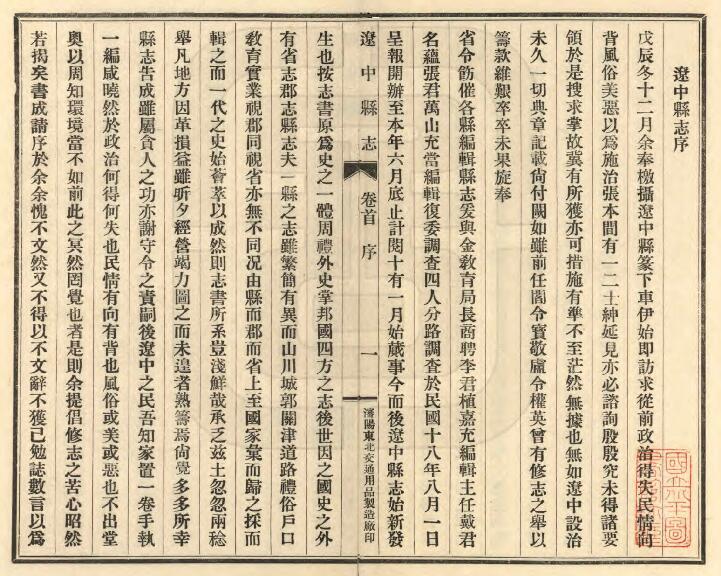 遼中縣志序
戊辰冬十二月余奉檄攝遼中縣篆下車伊始即訪求從前政治得失民情向
背風俗美惡以爲施治張本間有一二士紳延見亦必諮詢殷殷究未得諸要
領於是搜求掌故冀有所獲亦可措施有準不至茫然無據也無如遼中設治
未久一切典章記載尙付闕如雖前任閻令寶敬盧令權英曾有修志之舉以
籌款維艱卒卒未果旋奉
省令飭催各縣編輯縣志爰與金敎育局長商聘李君植嘉充編輯主任戴君
名蘊張君萬山充當編輯復委調查四人分路調查於民國十八年八月一日
呈報開辦至本年六月底止計閱十有一月始蕆事今而後遼中縣志始新發
遼中縣志
卷首
序
一
瀋陽東北交通用品製造廠印
生也按志書原爲史之一體周禮外史掌邦國四方之志後世因之國史之外
有省志郡志縣志夫一縣之志雖繁簡有異而山川城郭關津道路禮俗戶口
敎育實業視郡同視省亦無不同况由縣而郡而省上至國家彙而歸之採而
輯之而一代之史始薈萃以成然則志書所系豈淺鮮哉承乏茲土忽忽兩稔
舉凡地方因革損益雖昕夕經營竭力圖之而未遑者熟籌焉尙覺多多所幸
縣志吿成雖屬貪人之功亦謝守令之責嗣後遼中之民吾知家置一卷手執
一編咸曉然於政治何得何失也民情有向有背也風俗或美或惡也不出堂
奧以周知環境當不如前此之冥然罔覺也者是則余提倡修志之苦心昭然
若揭矣書成請序於余余愧不文然又不得以不文辭不獲已勉誌數言以爲